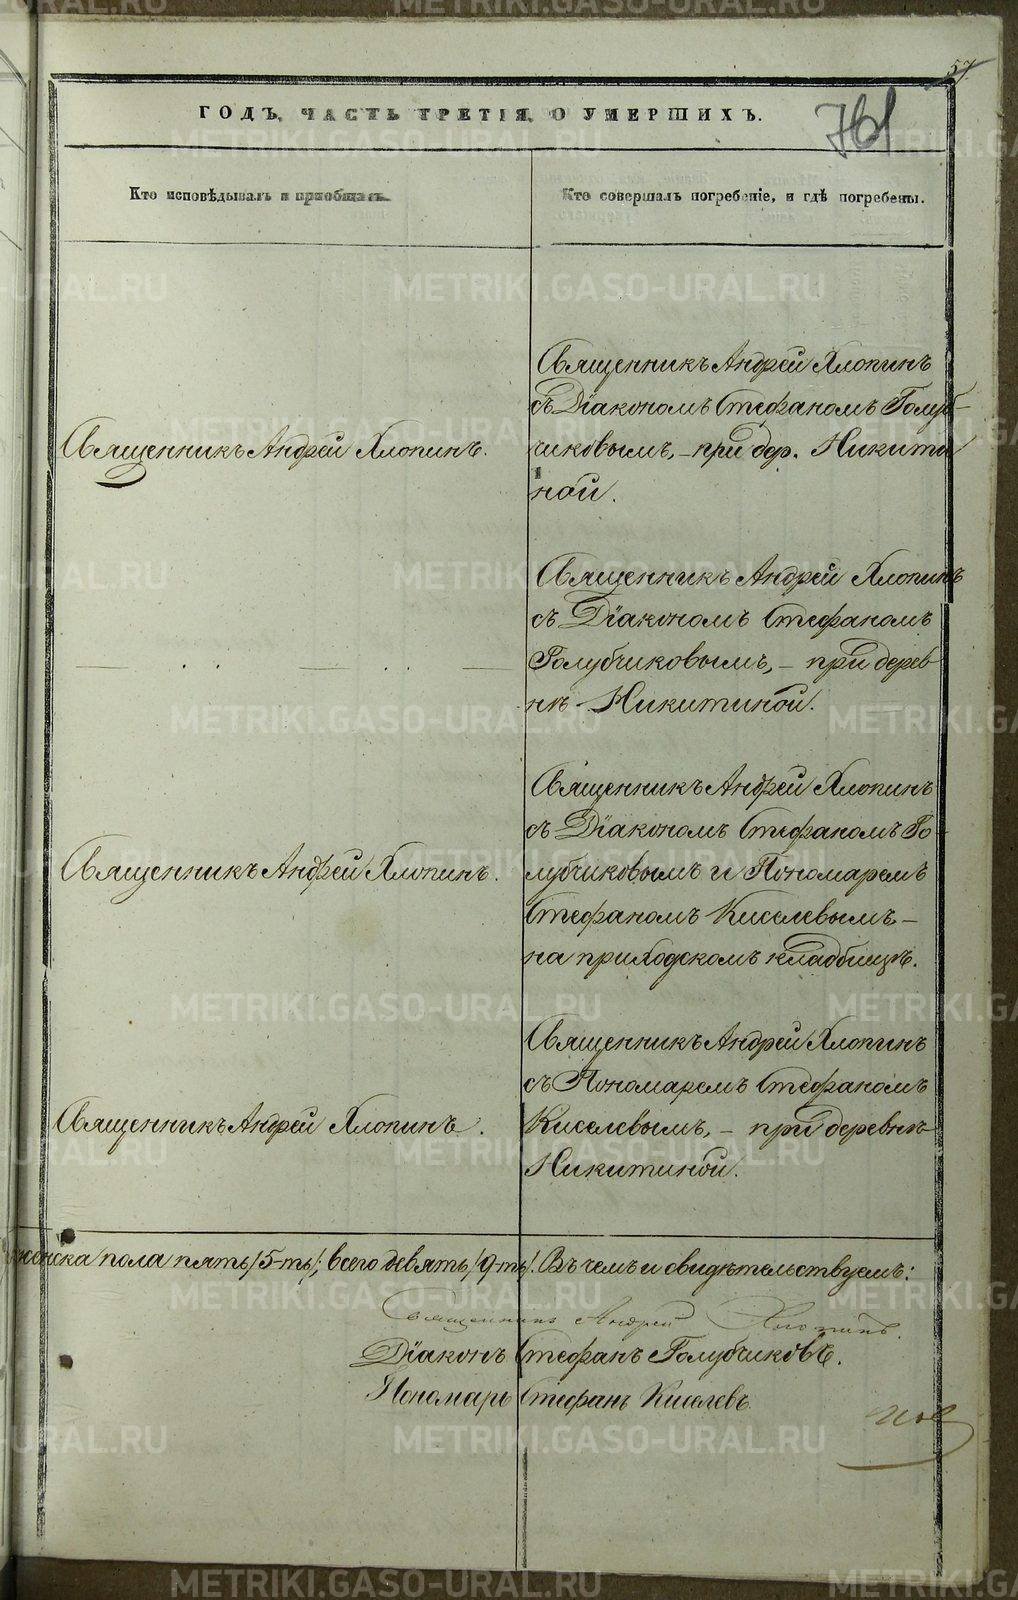 57
ГОДЪ, ЧАСТЬ ТРЕТІЯ, О УМЕРШИХЪ.
761
Кто исповѣдывалъ и пріобщалъ.
Кто совершалъ погребеніе, и гдѣ погребены.
Священникъ Андрей Хлопинъ.
Священникъ Андрей Хлопинъ
съ Діакономъ Стефаномъ Голуб-
чиковымъ, – при дер. Никити
ной.
Священникъ Андрей Хлопинъ
съ Діакономъ Стефаномъ
Голубчиковымъ, – при дерев
нѣ Никитиной.
Священникъ Андрей Хлопинъ.
Священникъ Андрей Хлопинъ
съ Діакономъ Стефаномъ Го-
лубчиковымъ и Пономаремъ
Стефаномъ Киселевымъ –
на приходскомъ кладбищѣ.
Священникъ Андрей Хлопинъ.
Священникъ Андрей Хлопинъ
съ Пономаремъ Стефаномъ
Киселевымъ, – при деревнѣ
Никитиной.
женска пола пять /5-ть/; всего девять /9-ть/. Въ чемъ и свидѣтельствуемъ:
Священникъ Андрей Хлопинъ.
Діаконъ Стефанъ Голубчиковъ.
Пономарь Стефанъ Киселевъ
METRIKI.GASO-URAL.RU